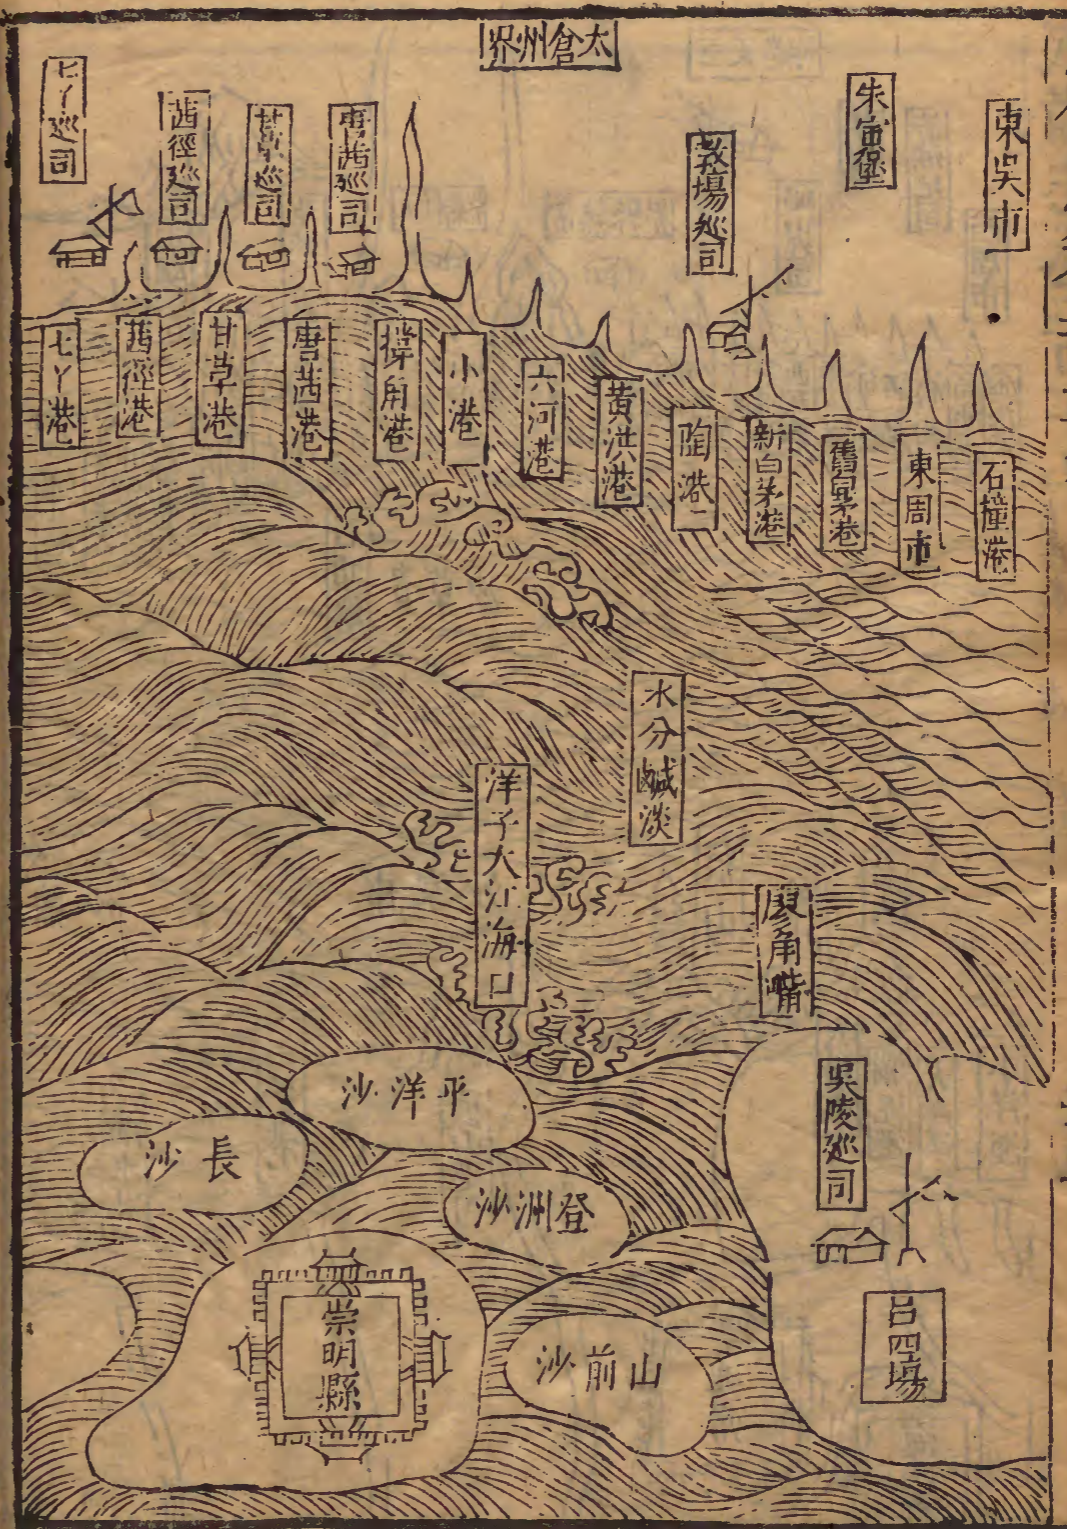 太倉州界
東吳市
朱寅堡
教場巡司
唐茜巡司
甘草巡司
茜徑巡司
七丫巡司
石撞港
東周市
舊白茅港
新白茅港
陶港二
黃洪港
六河港
小港
唐茜港
甘草港
茜徑港
七丫港
水分鹹淡
洋子大江海口
廖角嘴
吳陵巡司
平洋沙
長沙
登洲沙
呂四場
山前沙
崇明縣